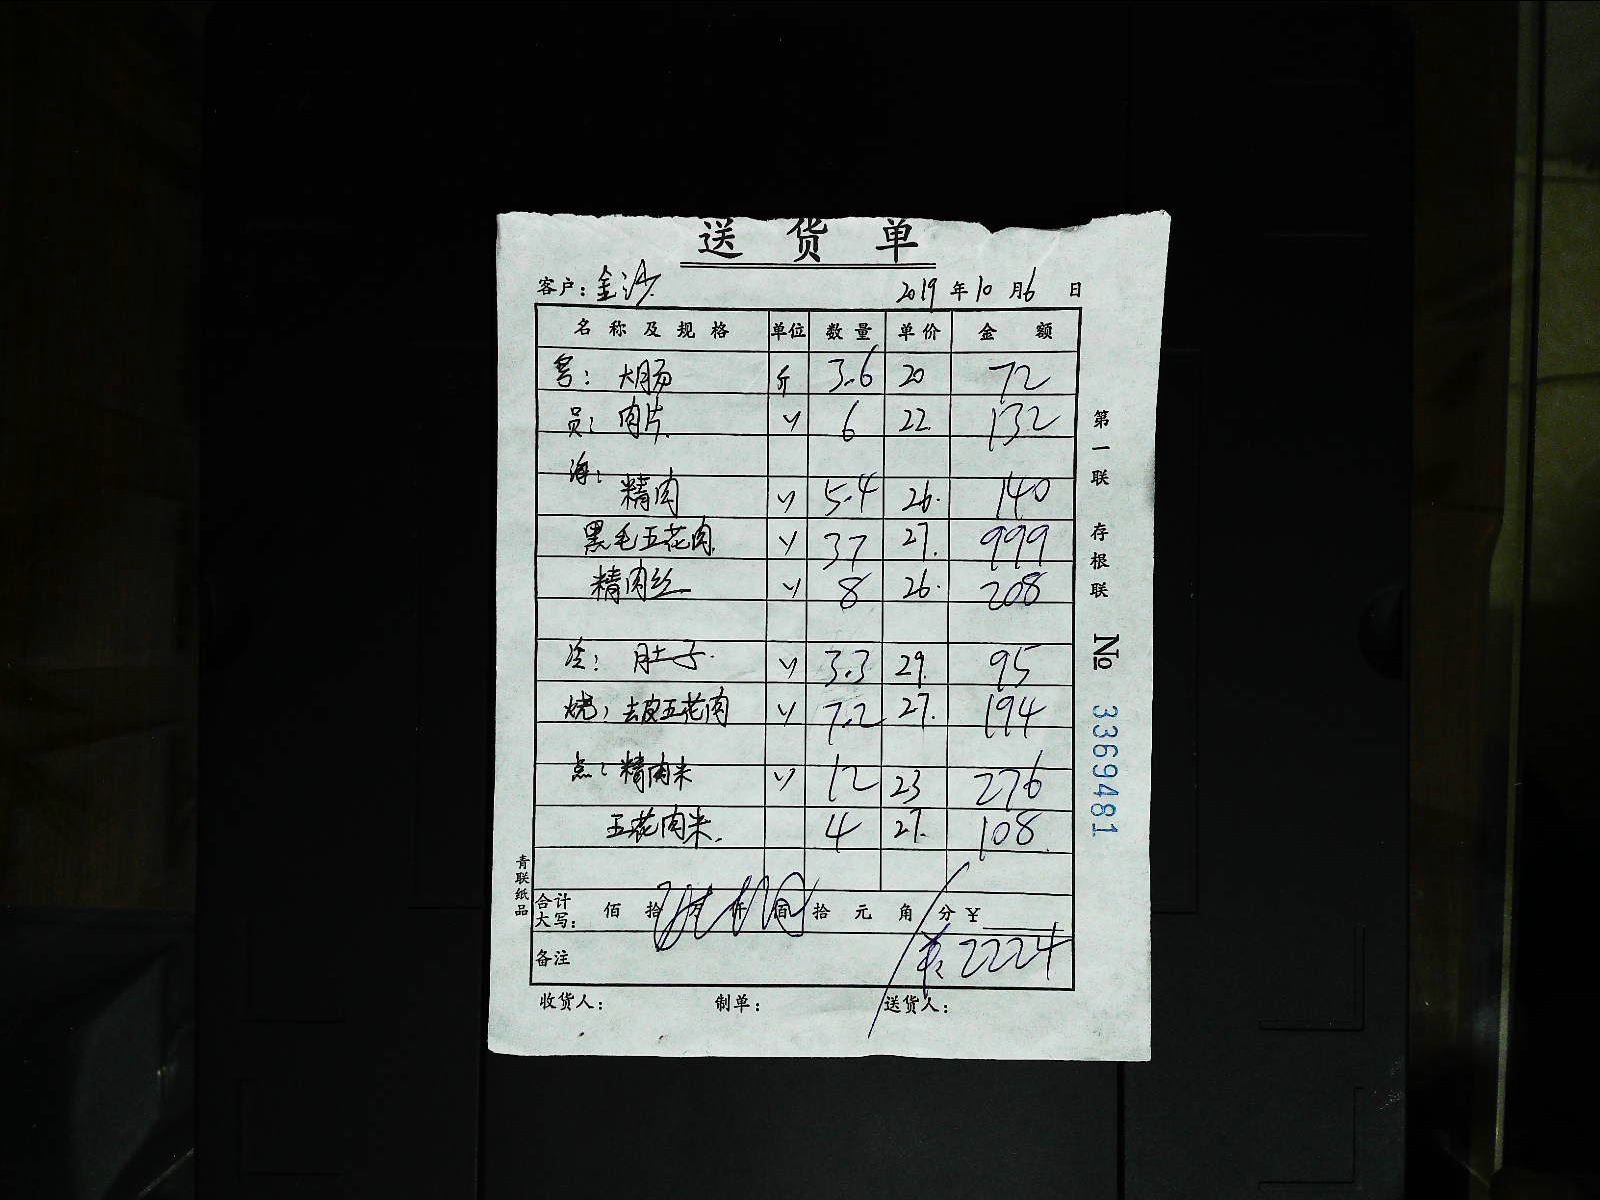 送货单
客户: 金沙 2019年10月6日
名称及规格 单位 数量 单价 金额
大肠 斤 3.6 20 72
员: 肉片 〃 6 22 132
海:
精肉 〃 5.4 26. 140
黑毛五花肉 〃 37 27. 999
精肉丝 〃 8 26. 208
冷: 肚子. 〃 3.3 29. 95
烧: 去皮五花肉 〃 7.2 27. 194
点: 精肉末 〃 12 23 276
五花肉末. 4 27. 108
合计大写: 佰 拾 万 仟 佰 拾 元 角 分 ¥
备注 2224
收货人: 制单: 送货人:
第一联 存根联 No 3369481
青联纸品